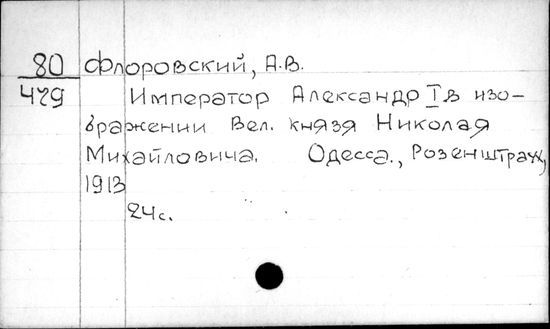 80 Флоровский, А.В.
479 Император Александр I в изо-
бражении Вел. Князя Николая
Михайловича. Одесса., Розенштраух,
1913
24с.